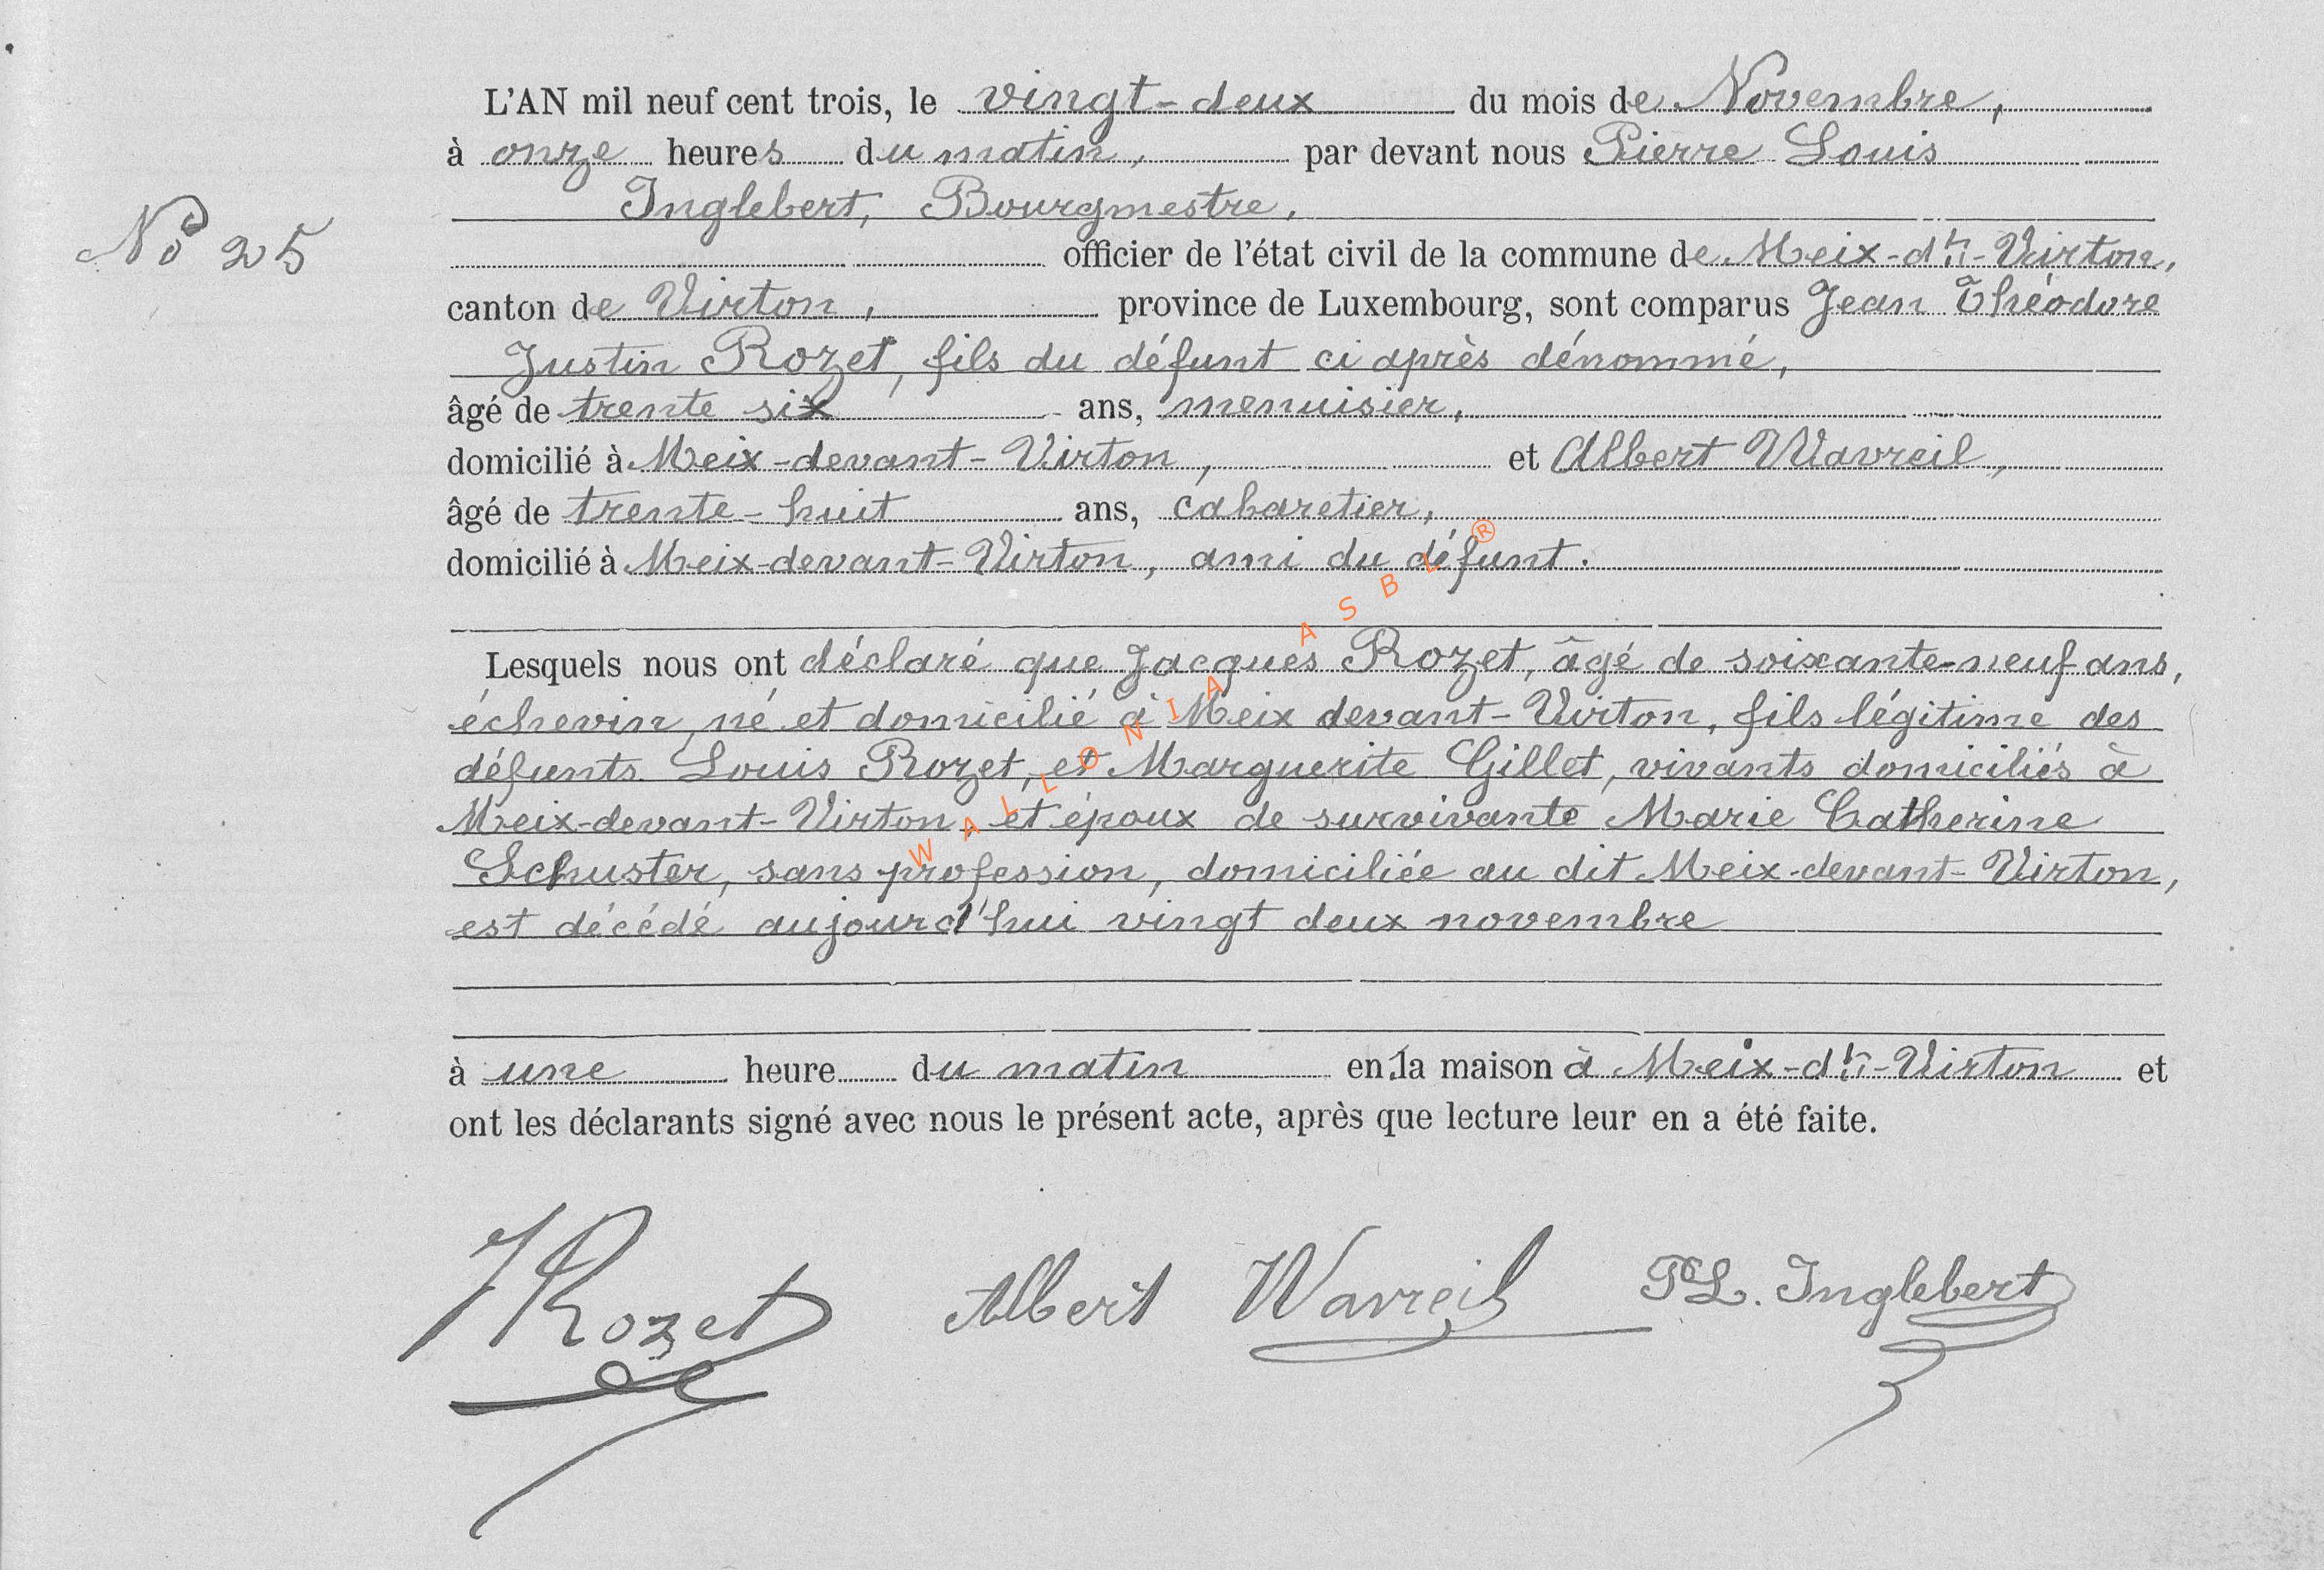 L'AN mil neuf cent trois, le vingt-deux du mois de Novembre,
à onze heures du matin, par devant nous Pierre Louis
Inglebert, Bourgmestre,
No 25
officier de l'état civil de la commune de Meix-dt-Virton,
canton de Virton, province de Luxembourg, sont comparus Jean Théodore
Justin Rozet, fils du défunt ci après dénommé,
âgé de trente six ans, menuisier,
domicilié à Meix-devant-Virton, et Albert Wavreil,
âgé de trente-huit ans, cabaretier,
domicilié à Meix-devant-Virton, ami du défunt.
Lesquels nous ont déclaré que Jacques Rozet, âgé de soixante-neuf ans,
échevin, né et domicilié à Meix devant-Virton, fils légitime des
défunts Louis Rozet, et Marguerite Gillet, vivants domiciliés à
Meix-devant-Virton, et époux de survivante Marie Catherine
Schuster, sans profession, domiciliée au dit Meix-devant-Virton,
est décédé aujourd'hui vingt deux novembre
à une heure du matin en la maison à Meix-dt-Virton et
ont les déclarants signé avec nous le présent acte, après que lecture leur en a été faite.
JRozet Albert Wavreil PL. Inglebert
WALLONIA ASBL ®